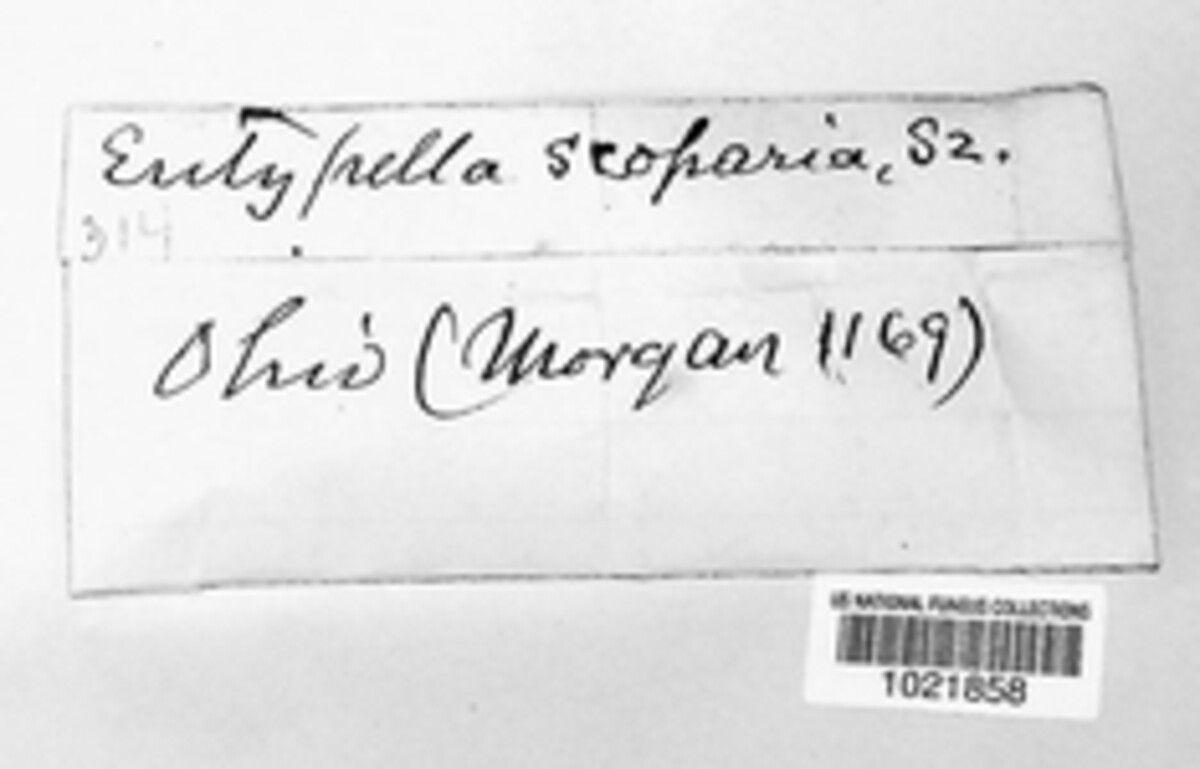 Eutypella scoparia, Sz.
314
Ohio (Morgan 1169)
US NATIONAL FUNGUS COLLECTIONS
1021858